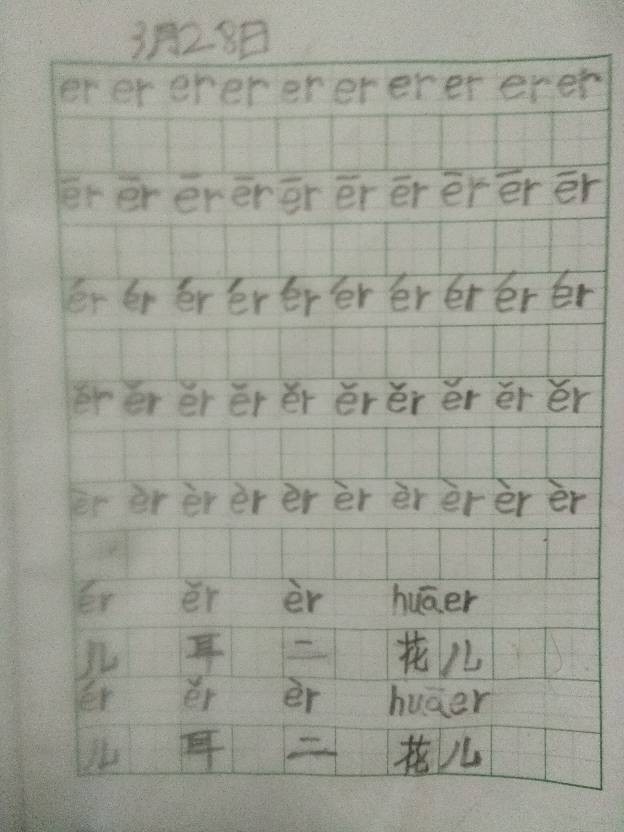 3月28日
er er er er er er er er er er
ēr ēr ēr ēr ēr ēr ēr ēr ēr ēr
ér ér ér ér ér ér ér ér ér ér
ěr ěr ěr ěr ěr ěr ěr ěr ěr ěr
èr èr èr èr èr èr èr èr èr èr
ér ěr èr huāer
儿 耳 二 花儿
ér ěr èr huāer
儿 耳 二 花儿